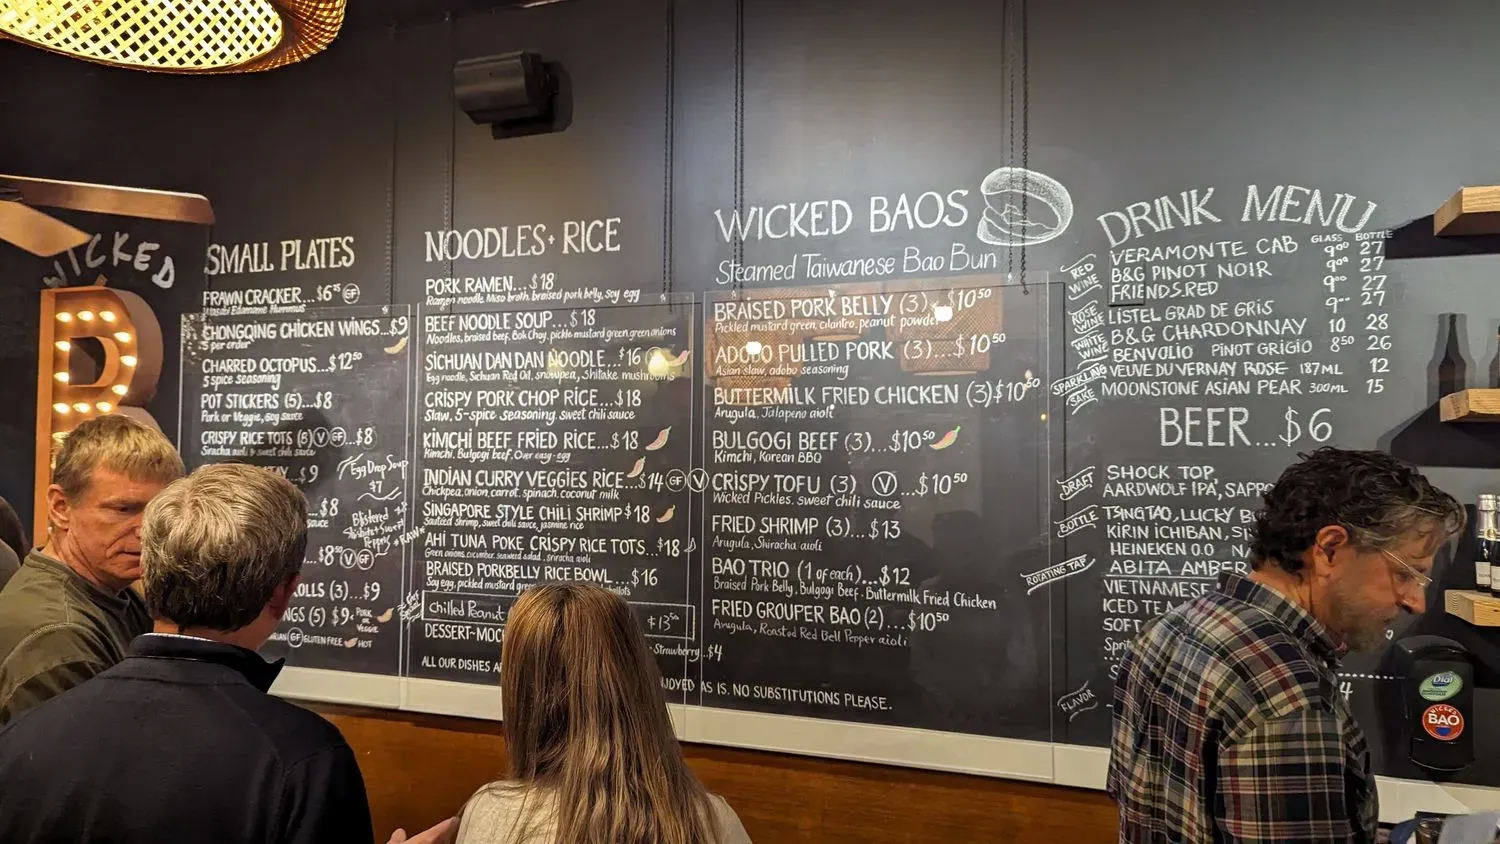 WICKED
B
SMALL PLATES
PRAWN CRACKER...$6 GF
Wasabi Edamame Hummus
CHONGQING CHICKEN WINGS...$9
5 per order
CHARRED OCTOPUS...$12.50
5 spice seasoning
POT STICKERS (5)...$8
Pork or Veggie, soy sauce
CRISPY RICE TOTS (6) V GF...$8
Siracha aioli & sweet chili sauce
...$9
Egg Drop Soup
$7
...$8
sauce
Blistered
Peppers
...$8.50 V GF
ROLLS (3)...$9
(5) $9 PORK OR VEGGIE
GF GLUTEN FREE HOT
NOODLES + RICE
PORK RAMEN...$18
Ramen noodle, Miso broth, braised pork belly, soy egg
BEEF NOODLE SOUP...$18
Noodles, braised beef, Bok Choy, pickle mustard green, green onions
SICHUAN DAN DAN NOODLE...$16
Egg noodle, Sichuan Red Oil, snowpea, Shitake mushrooms
CRISPY PORK CHOP RICE...$18
Slaw, 5-spice seasoning, sweet chili sauce
KIMCHI BEEF FRIED RICE...$18
Kimchi, Bulgogi beef, Over easy-egg
INDIAN CURRY VEGGIES RICE...$14 GF V
Chickpea, onion, carrot, spinach, coconut milk
SINGAPORE STYLE CHILI SHRIMP $18
Sauteed shrimp, sweet chili sauce, jasmine rice
*RAW*
AHI TUNA POKE CRISPY RICE TOTS...$18
Green onions, cucumber, seaweed salad, sriracha aioli
BRAISED PORKBELLY RICE BOWL...$16
Soy egg, pickled mustard
Chilled Peanut
$13.50
DESSERT-MOC
Strawberry...$4
ALL OUR DISHES
ENJOYED AS IS. NO SUBSTITUTIONS PLEASE.
WICKED BAOS
Steamed Taiwanese Bao Bun
BRAISED PORK BELLY (3)...$10.50
Pickled mustard green, cilantro, peanut powder
ADOBO PULLED PORK (3)...$10.50
Asian slaw, adobo seasoning
BUTTERMILK FRIED CHICKEN (3) $10.50
Arugula, Jalapeno aioli
BULGOGI BEEF (3)...$10.50
Kimchi, Korean BBQ
CRISPY TOFU (3) V...$10.50
Wicked Pickles, sweet chili sauce
FRIED SHRIMP (3)...$13
Arugula, Shiracha aioli
BAO TRIO (1 of each)...$12
Braised Pork Belly, Bulgogi Beef, Buttermilk Fried Chicken
FRIED GROUPER BAO (2)...$10.50
Arugula, Roasted Red Bell Pepper aioli
DRINK MENU
GLASS BOTTLE
RED WINE
VERAMONTE CAB 9.00 27
B&G PINOT NOIR 9.00 27
FRIENDS.RED 9.00 27
ROSE WINE
LISTEL GRAD DE GRIS 9 27
WHITE WINE
B&G CHARDONNAY 10 28
BENVOLIO PINOT GRIGIO 8.50 26
SPARKLING
VEUVE DU VERNAY ROSE 187ML 12
SAKE
MOONSTONE ASIAN PEAR 300ML 15
BEER...$6
DRAFT
SHOCK TOP,
AARDWOLF IPA, SAPPO
BOTTLE
TSINGTAO, LUCKY B
KIRIN ICHIBAN,
HEINEKEN 0.0
ROTATING TAP
ABITA AMBER
VIETNAMESE
ICED TEA
SOFT
Sprit
FLAVOR
4
Dial
WICKED
BAO